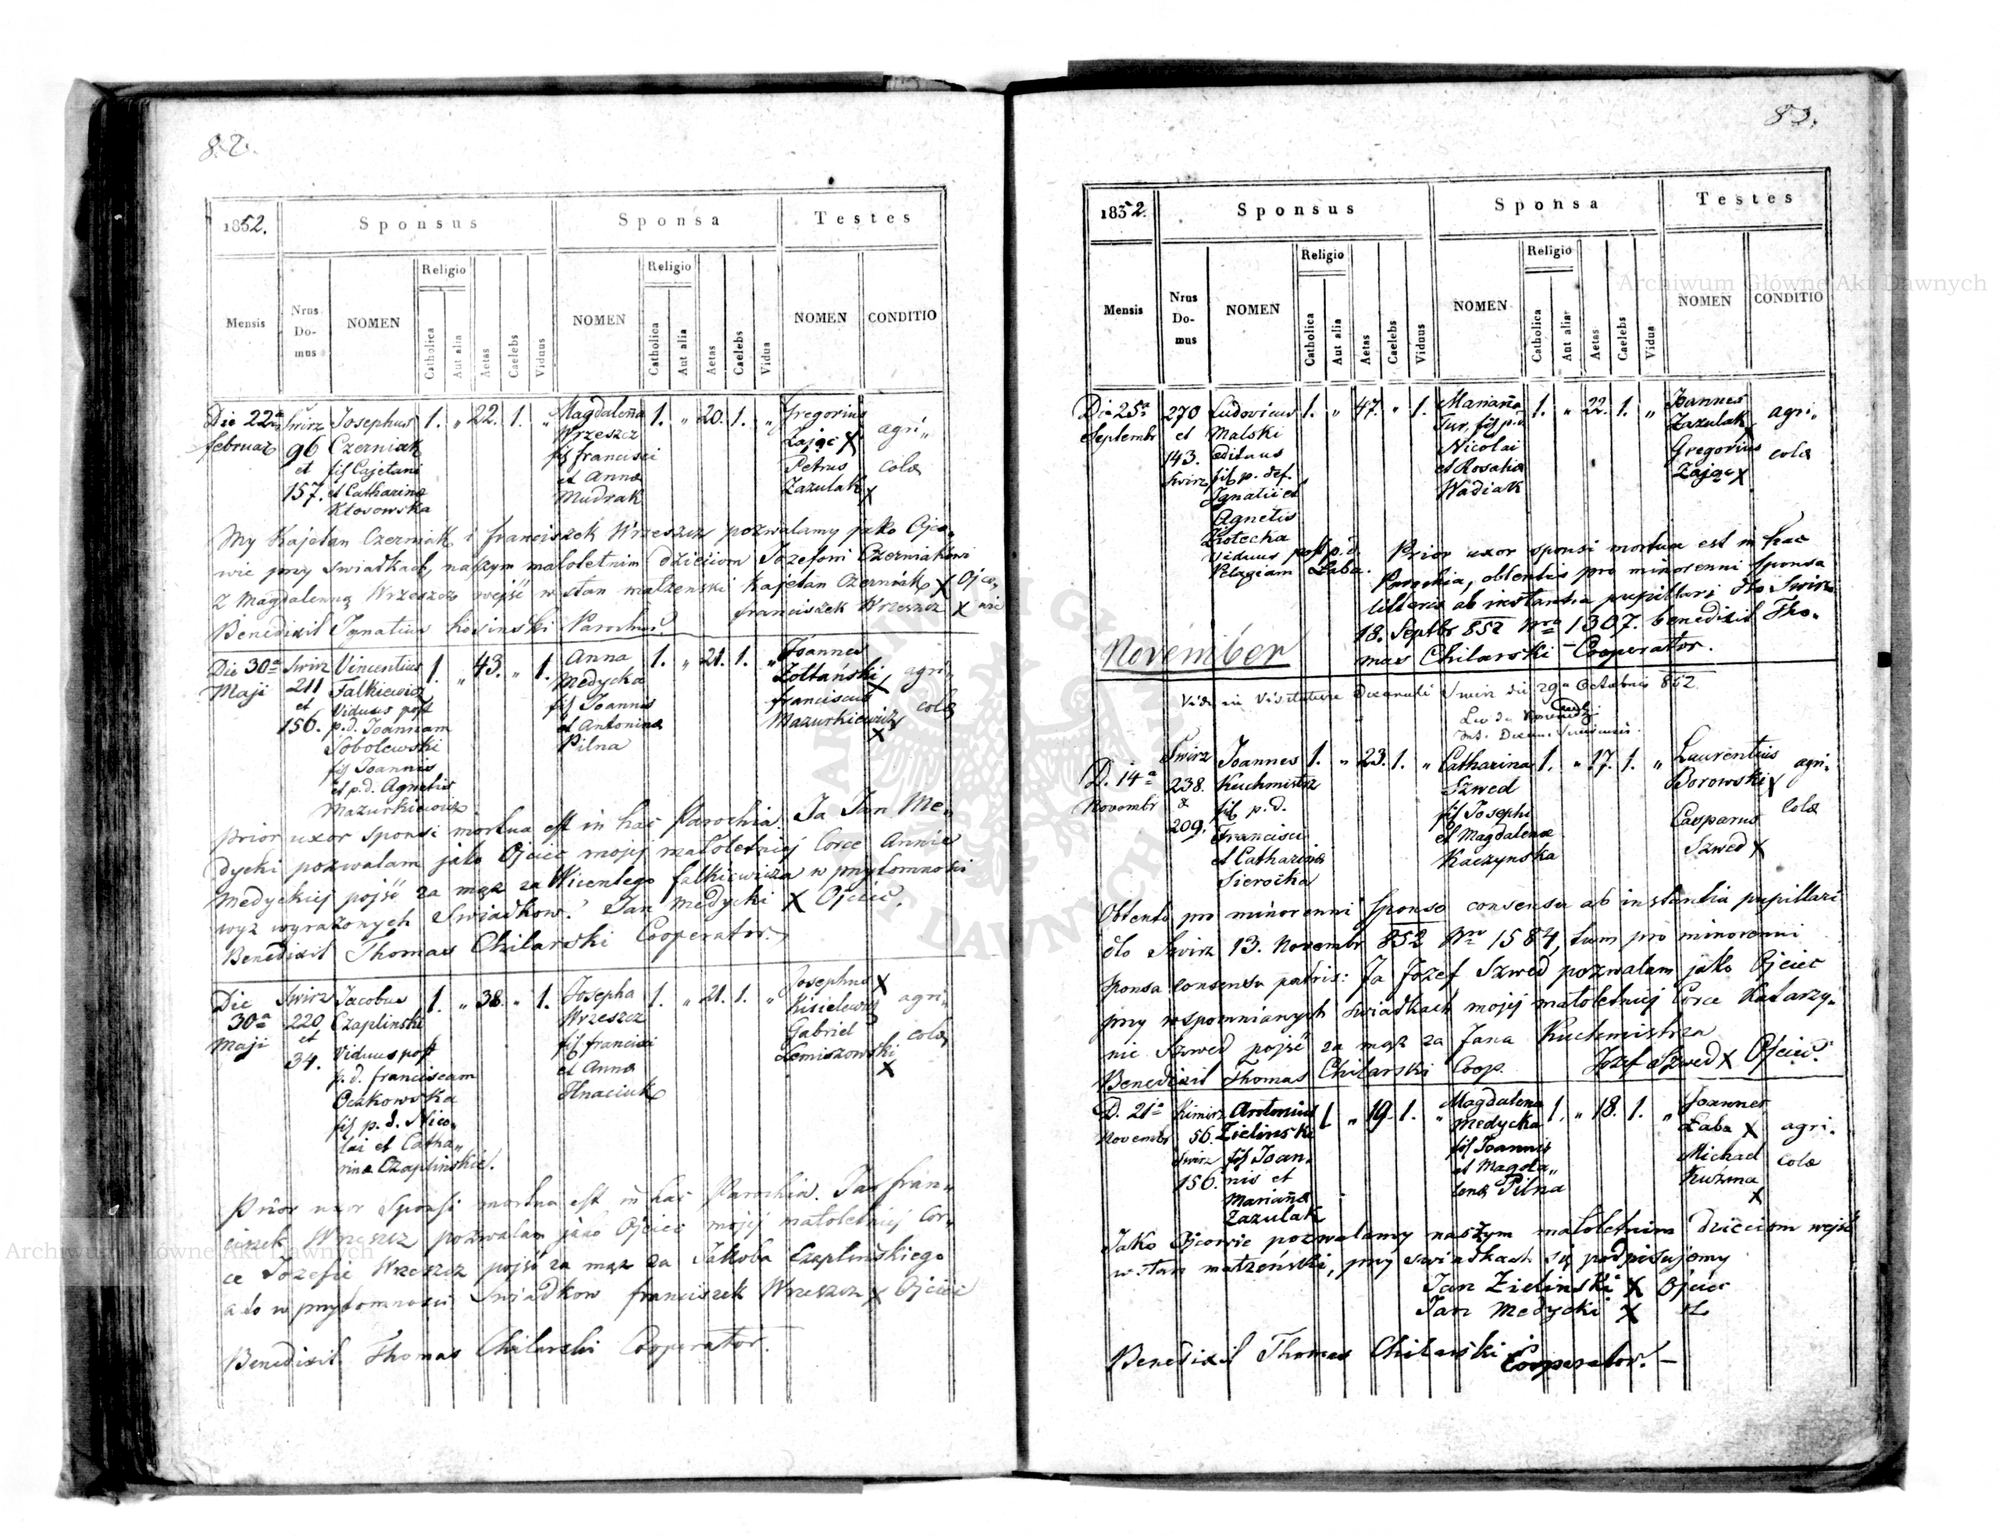 82.
1852.
Sponsus
Sponsa
Testes
Mensis
Nrus Domus
NOMEN
Religio
Catholica
Aut alia
Aetas
Caelebs
Viduus
NOMEN
Religio
Catholica
Aut alia
Aetas
Caelebs
Vidua
NOMEN
CONDITIO
Die 22a Swirz Josephus 1. " 22. 1. " Magdalena 1. " 20. 1. " Gregorius
februar 96 Czerniak Wrzeszcz Zając X agri"
et fil Cajetani fil francisci Petrus colae
157. et Catharinae et Annae Zazulak X
Kłosowska Mudrak
My Kajetan Czerniak i franciszek Wrzeszcz pozwalamy jako Ojco-
wie przy swiadkach, naszym małoletnim dzieciom Jozefowi Czerniakowi
z Magdalenną Wrzeszcz wejść w stan małżenski Kajetan Czerniak X Ojco-
franciszek Wrzeszcz X wie
Benedixit Ignatius Kosinski Parochus
Die 30a Swirz Vincentius 1. " 43. " 1. Anna 1. " 21. 1. " Joannes
Maji 211 Falkiewicz Medycka Żołtański, agri"
et Viduus post fil Joannis franciscus X colae
156. p.d. Joannam et Antoninae Mazurkiewicz
Sobolewski Pilna X
fil Joannis
et p.d. Agnetis
Mazurkiewicz
Prior uxor sponsi mortua est in hac Parochia. Ja Jan Me-
dycki pozwalam jako Ojciec mojej małoletniej Corce Annie
Medyckiej pojść za mąż za Wicentego falkiewicza w przytomności
wyż wyrażonych Swiadkow. Jan Medycki X Ojciec.
Benedixit Thomas Chilarski Cooperator.
Die Swirz Jacobus 1. " 38. " 1. Josepha 1. " 21. 1. " Josephus X
30a 220 Czaplinski Wrzeszcz Kisielewicz agri"
Maji et Viduus post fil francisci Gabriel colae
34. p.d. franciscam et Annae Lemiszowski
Ochkowska Hnaciuk X
fil p.d. Nico-
lai et Catha"
rinae Czaplinskie.
Prior uxor Sponsi mortua est in hac Parochia. Ja fran"
ciszek Wrzeszcz pozwalam jako Ojciec mojej małoletniej Cor-
ce Jozefie Wrzeszcz pojść za mąż za Jakoba Czaplinskiego
a to w przytomności Swiadkow franciszek Wrzeszcz X Ojciec
Benedixit Thomas Chilarski Cooperator.
83.
1852.
Sponsus
Sponsa
Testes
Mensis
Nrus Domus
NOMEN
Religio
Catholica
Aut alia
Aetas
Caelebs
Viduus
NOMEN
Religio
Catholica
Aut alia
Aetas
Caelebs
Vidua
NOMEN
CONDITIO
Die 25a 270 Ludovicus 1. " 47. " 1. Marianna 1. " 22. 1. " Joannes
Septembr et Malski Tur, fil p.d. Zazulak agri"
143. Nicolai Gregorius colae
Swirz fil p. def. et Rosalia Zając X
Ignatii et Wadiak
Agnetis
Złotecka
Viduus post p.d.
Pelagiam Łaba.
Prior uxor sponsi mortua est in hac
Parochia, obtentis pro minorenni Sponsa
litteris ab instantia pupillari dto Swirz
18. Septbr 852 Nro 1307. benedixit Tho-
mas Chilarski Cooperator.
November
Swirz die 29a Octobris 852.
Swirz Joannes 1. " 23. 1. " Catharina 1. " 17. 1. " Laurentius
D. 14a 238. Kuchmistrz Szwed Borowski X agri"
Novembr & fil p.d. fil Josephi Casparus colae
209. Francisci et Magdalenae Szwed X
et Catharinae Kaczynska
Sierocka
Obtento pro minorenni Sponso consensu ab instantia pupillari
dto Swirz 13. Novembr 852 Nro 1584, tum pro minorenni
Sponsa consensu patris: Ja Jozef Szwed pozwalam jako Ojciec
przy wspomnianych swiadkach mojej małoletniej Corce Katarzy-
nie Szwed pojść za mąż za Jana Kuchmistrza
Benedixit Thomas Chilarski Coop. Jozef Szwed X Ojciec.
D. 21a Kimirz Antonius 1. " 19. 1. " Magdalena 1. " 18. 1. " Joannes
Novembr 56. Zielinski Medycka Łaba X agri-
Swirz fil Joan- fil Joannis Michael colae
156. nis et et Magda" Kuźma
Mariannae lenae Pilna X
Zazulak
Jako Ojcowie pozwalamy naszym małoletnim dzieciom wejść
w stan małżeński, przy swiadkach się podpisujemy
Jan Zielinski X Ojciec
Jan Medycki X
Benedixit Thomas Chilarski Cooperator.
Archiwum Główne Akt Dawnych
Archiwum Główne Akt Dawnych
ARCHIWUM GŁÓWNE AKT DAWNYCH